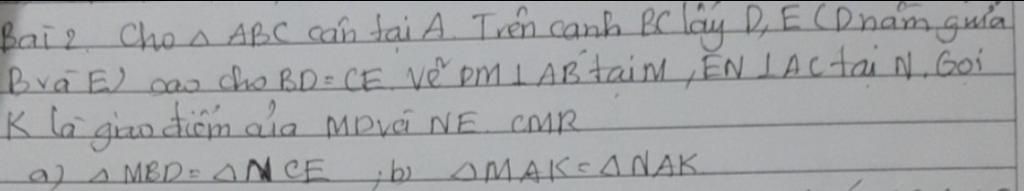 Bài 2. Cho △ ABC cân tại A. Trên cạnh BC lấy D, E (D nằm giữa
B và E) sao cho BD = CE. Vẽ DM ⊥ AB tại M, EN ⊥ AC tại N. Gọi
K là giao điểm của MD với NE. CMR
a) △ MBD = △ NCE ; b) △ MAK = △ NAK